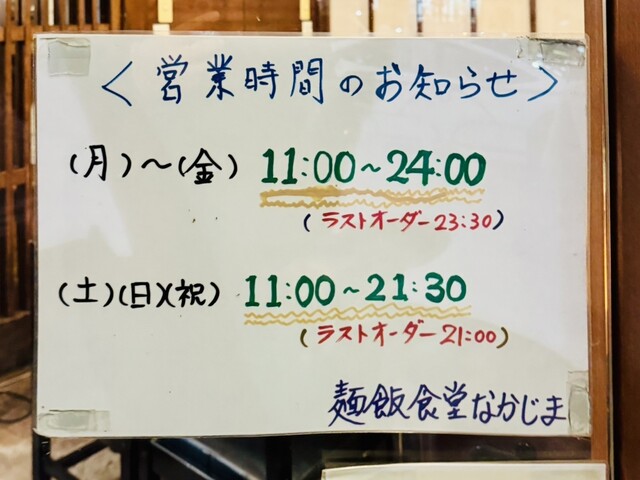 ＜営業時間のお知らせ＞
(月)～(金) 11:00～24:00
(ラストオーダー23:30)
(土)(日)(祝) 11:00～21:30
(ラストオーダー21:00)
麺飯食堂なかじま